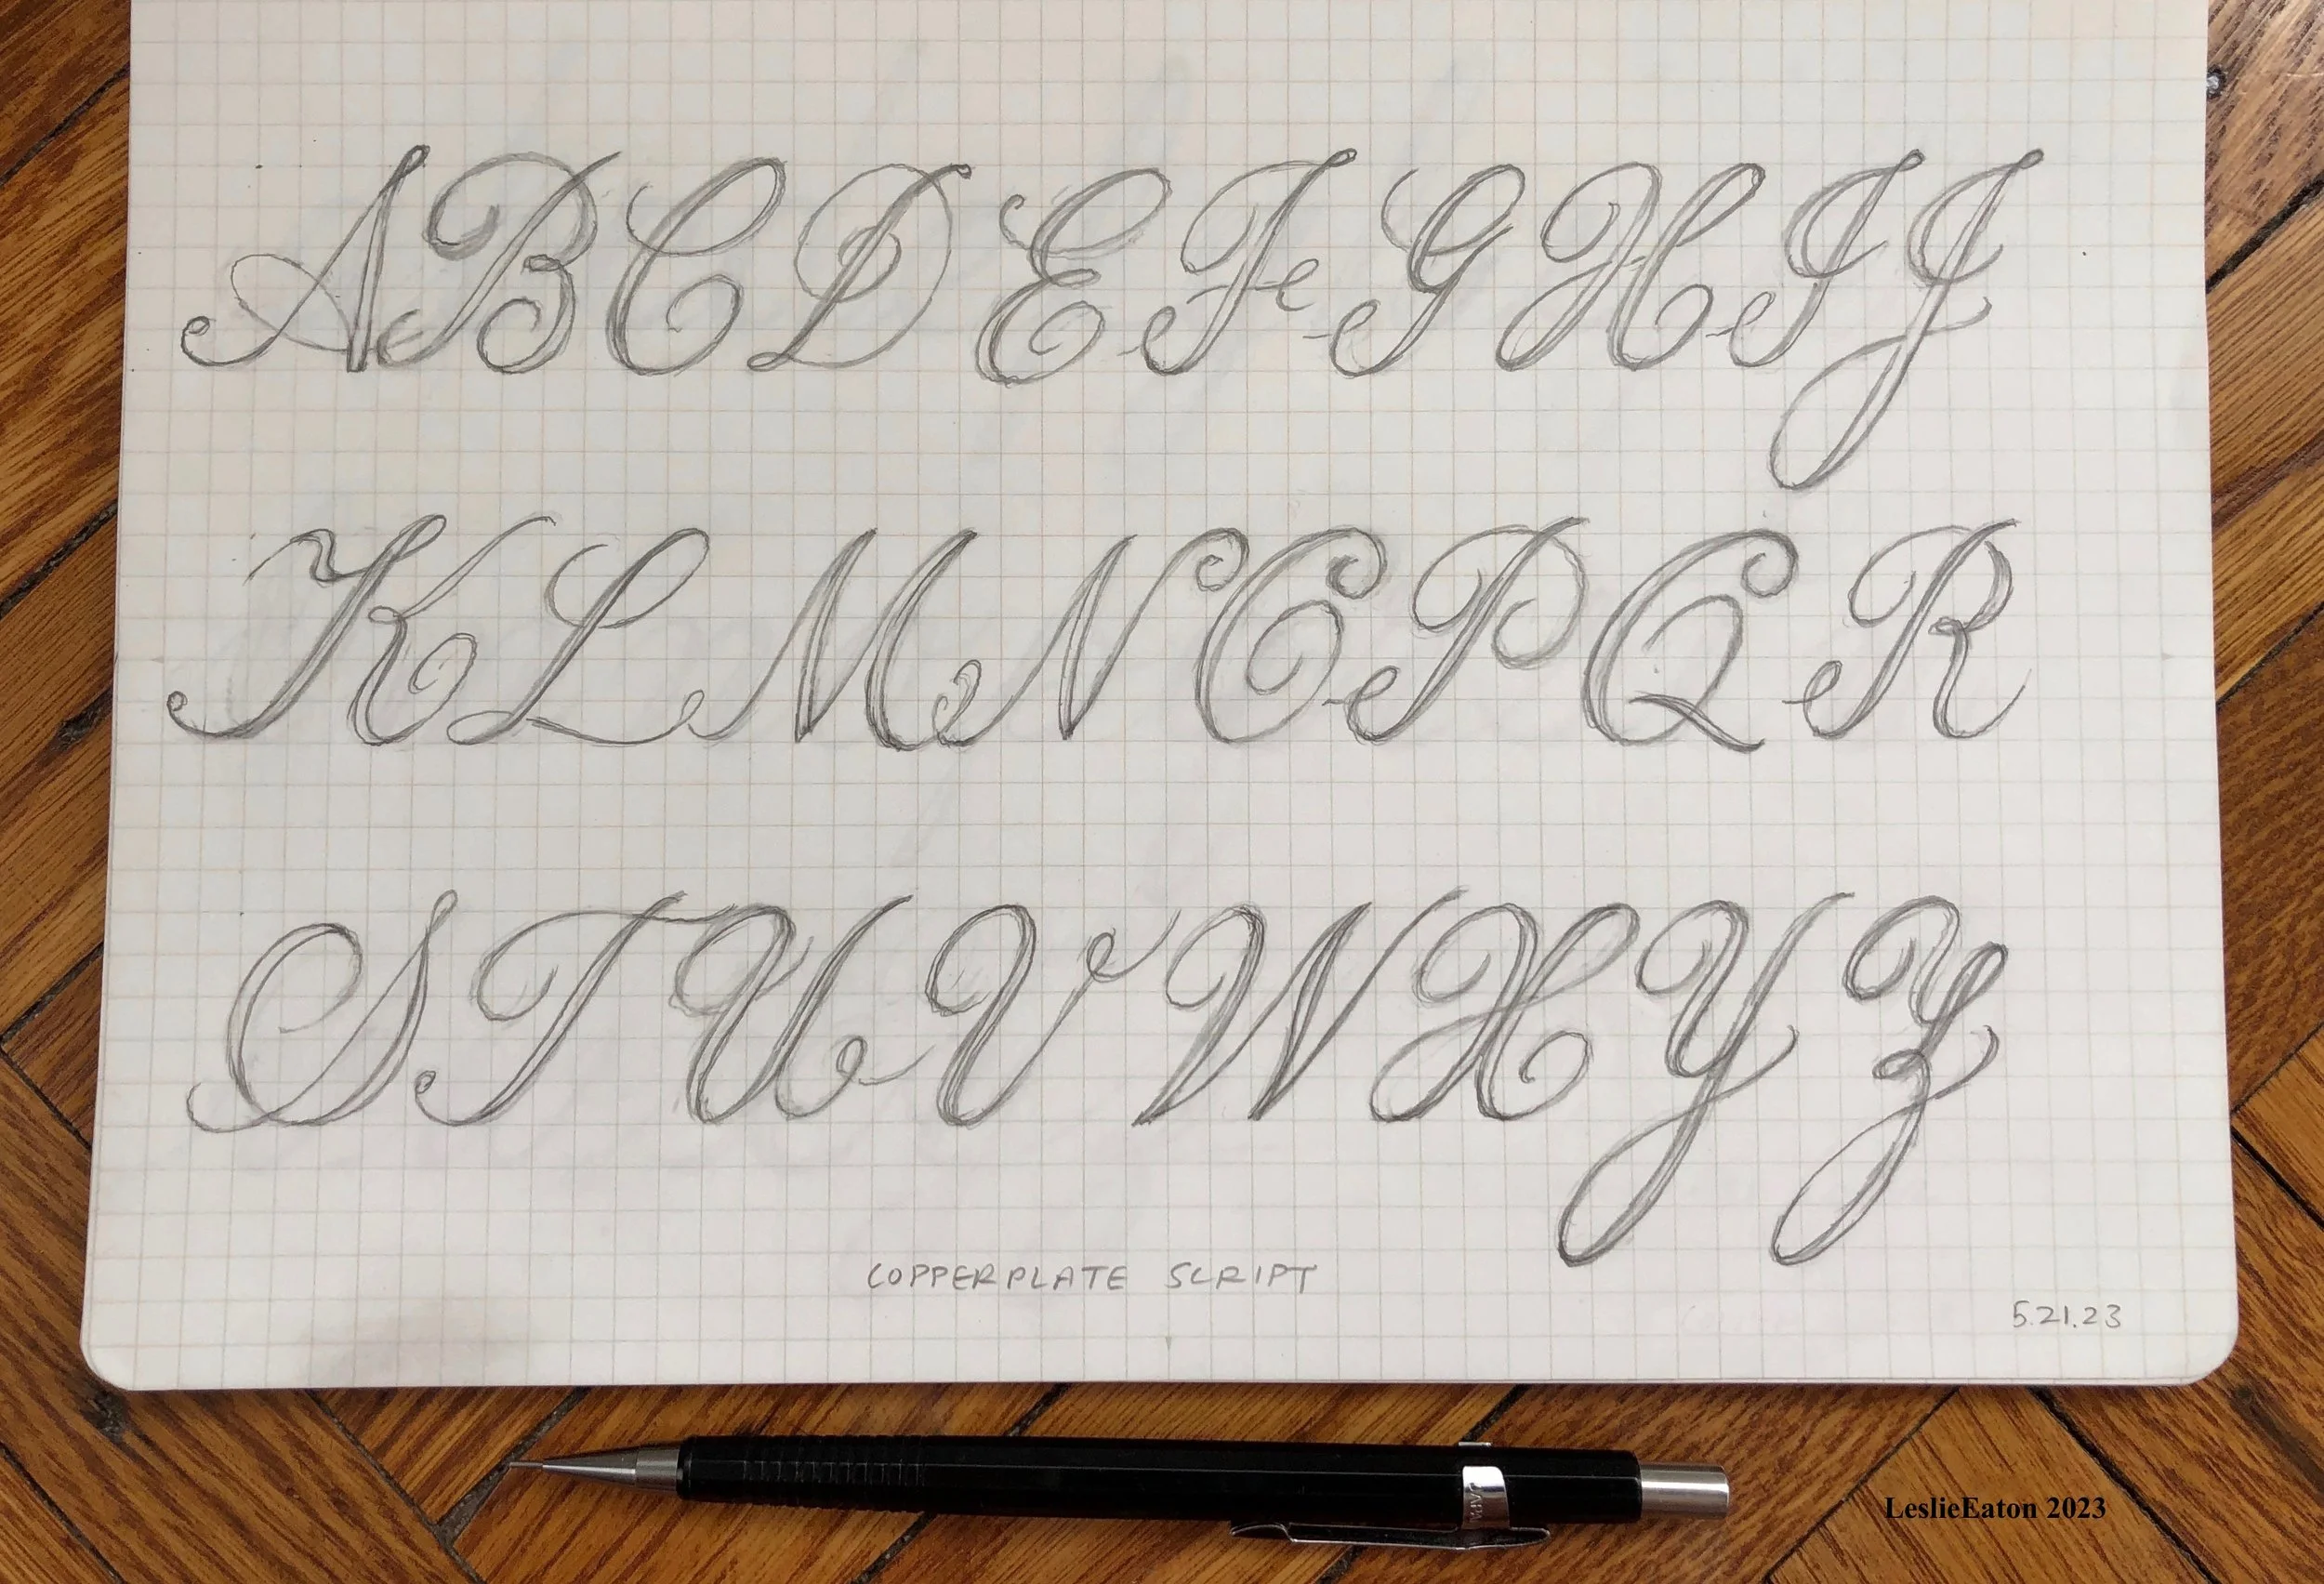 ABCDEFGHIJ
KLMNOPQR
STUVWXYZ
COPPERPLATE SCRIPT
5.21.23
JAPAN
LeslieEaton 2023